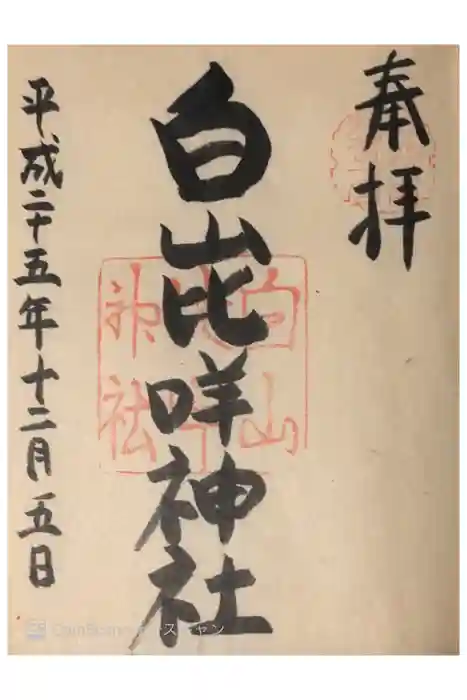 奉拝
白山比咩神社
平成二十五年十二月五日
白山
神社
CamScanner でスキャン